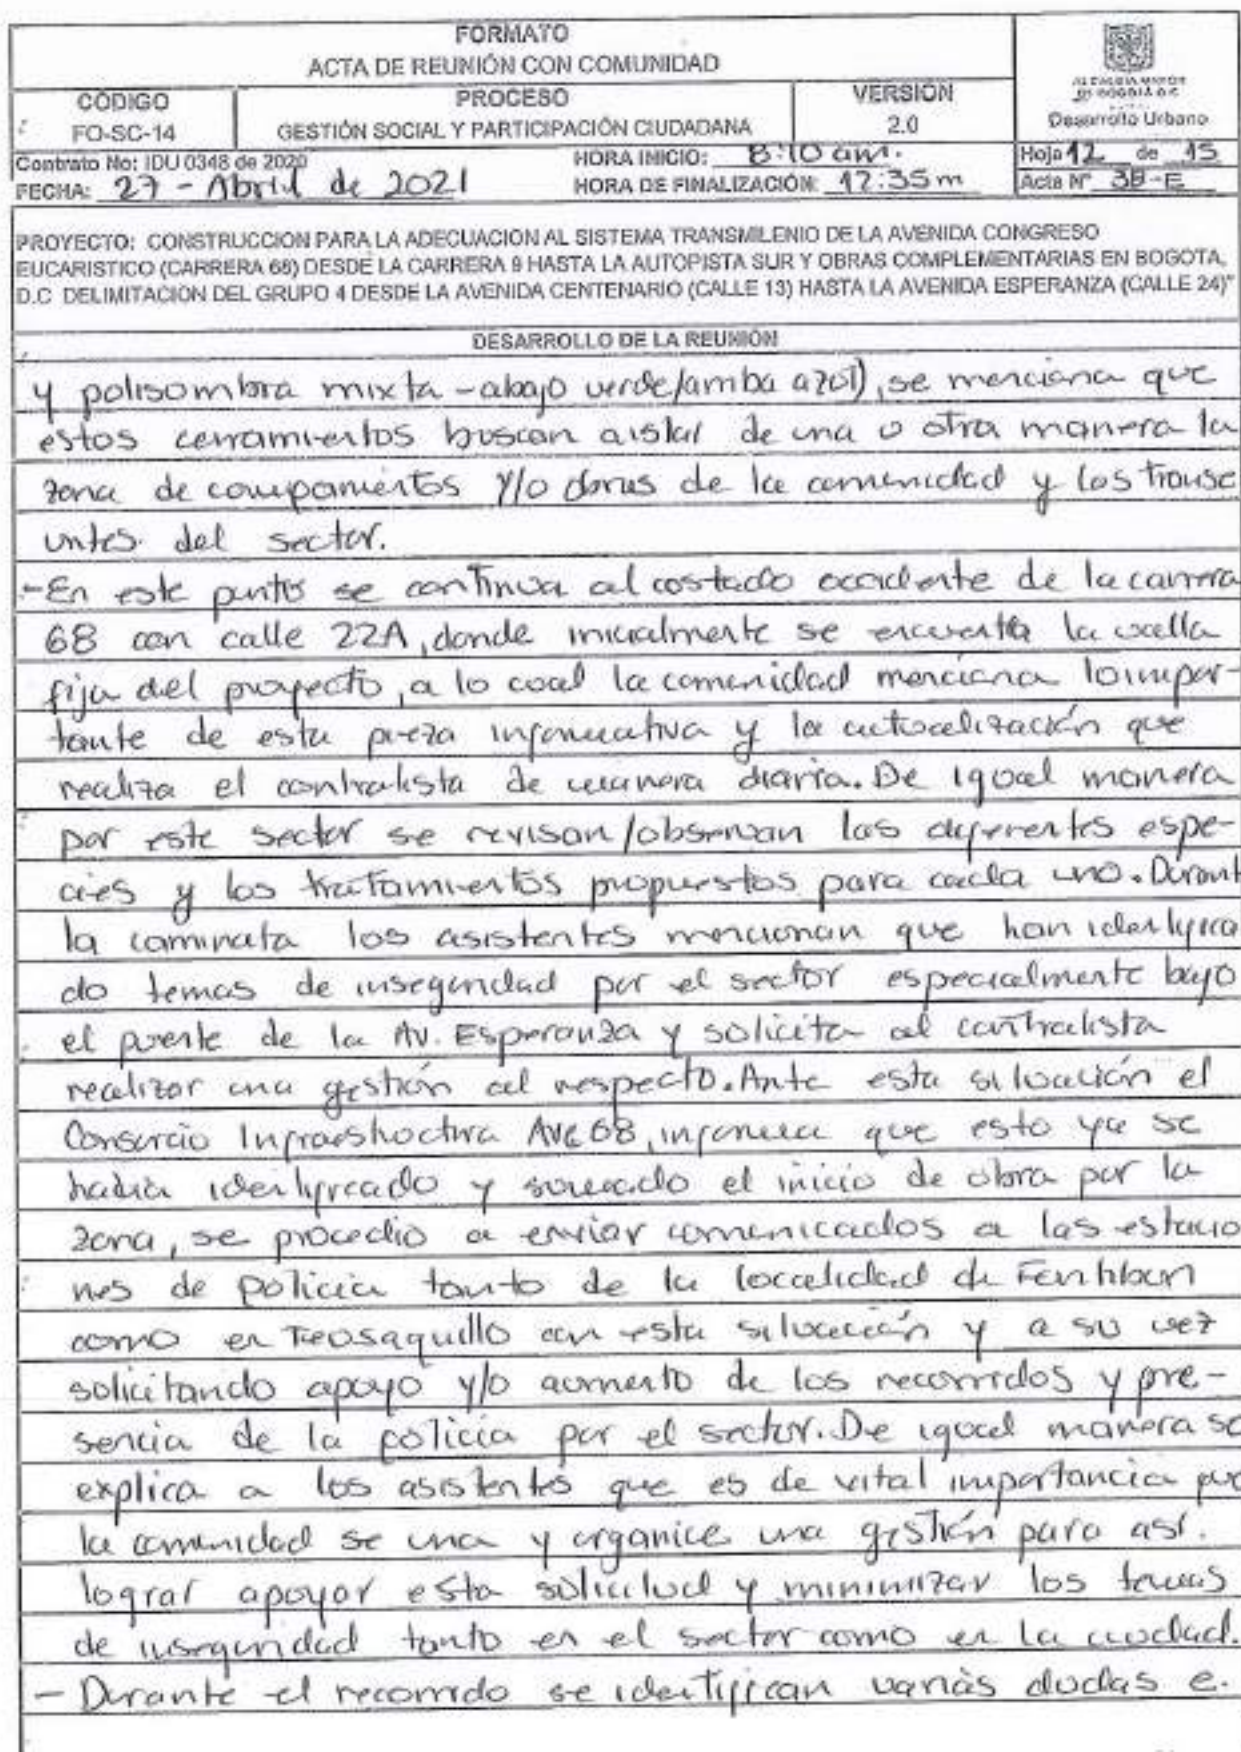 FORMATO
ACTA DE REUNIÓN CON COMUNIDAD
CÓDIGO
FO-SC-14
PROCESO
GESTIÓN SOCIAL Y PARTICIPACIÓN CIUDADANA
VERSIÓN
2.0
ALCALDÍA MAYOR
DE BOGOTÁ D.C.
Desarrollo Urbano
Contrato No: IDU 0348 de 2020
HORA INICIO: 8:10 am.
Hoja 12 de 15
FECHA: 27 - Abril de 2021
HORA DE FINALIZACIÓN: 12:35 m
Acta N° 38-E
PROYECTO: CONSTRUCCION PARA LA ADECUACION AL SISTEMA TRANSMILENIO DE LA AVENIDA CONGRESO
EUCARISTICO (CARRERA 68) DESDE LA CARRERA 9 HASTA LA AUTOPISTA SUR Y OBRAS COMPLEMENTARIAS EN BOGOTA,
D.C DELIMITACION DEL GRUPO 4 DESDE LA AVENIDA CENTENARIO (CALLE 13) HASTA LA AVENIDA ESPERANZA (CALLE 24)"
DESARROLLO DE LA REUNIÓN
y polisombra mixta - abajo verde/arriba azul), se menciona que
estos cerramientos buscan aislar de una u otra manera la
zona de campamentos y/o obras de la comunidad y los transe
untes del sector.
- En este punto se continua al costado occidente de la carrera
68 con calle 22A, donde inicialmente se encuentra la valla
fija del proyecto, a lo cual la comunidad menciona lo impor-
tante de esta pieza informativa y la actualización que
realiza el contratista de manera diaria. De igual manera
por este sector se revisan/observan las diferentes espe-
cies y los tratamientos propuestos para cada uno. Durant
la caminata los asistentes mencionan que han identifica
do temas de inseguridad por el sector especialmente bajo
el puente de la Av. Esperanza y solicita al contratista
realizar una gestión al respecto. Ante esta situación el
Consorcio Infraestructura Ave 68, informa que esto ya se
habia identificado y sumado el inicio de obra por la
zona, se procedio a enviar comunicados a las estacio
nes de policia tanto de la localidad de Fontibon
como en Teusaquillo con esta situación y a su vez
solicitando apoyo y/o aumento de los recorridos y pre-
sencia de la policia por el sector. De igual manera se
explica a los asistentes que es de vital importancia que
la comunidad se una y organice una gestión para así.
lograr apoyar esta solicitud y minimizar los temas
de inseguridad tanto en el sector como en la ciudad.
- Durante el recorrido se identifican varias dudas e.